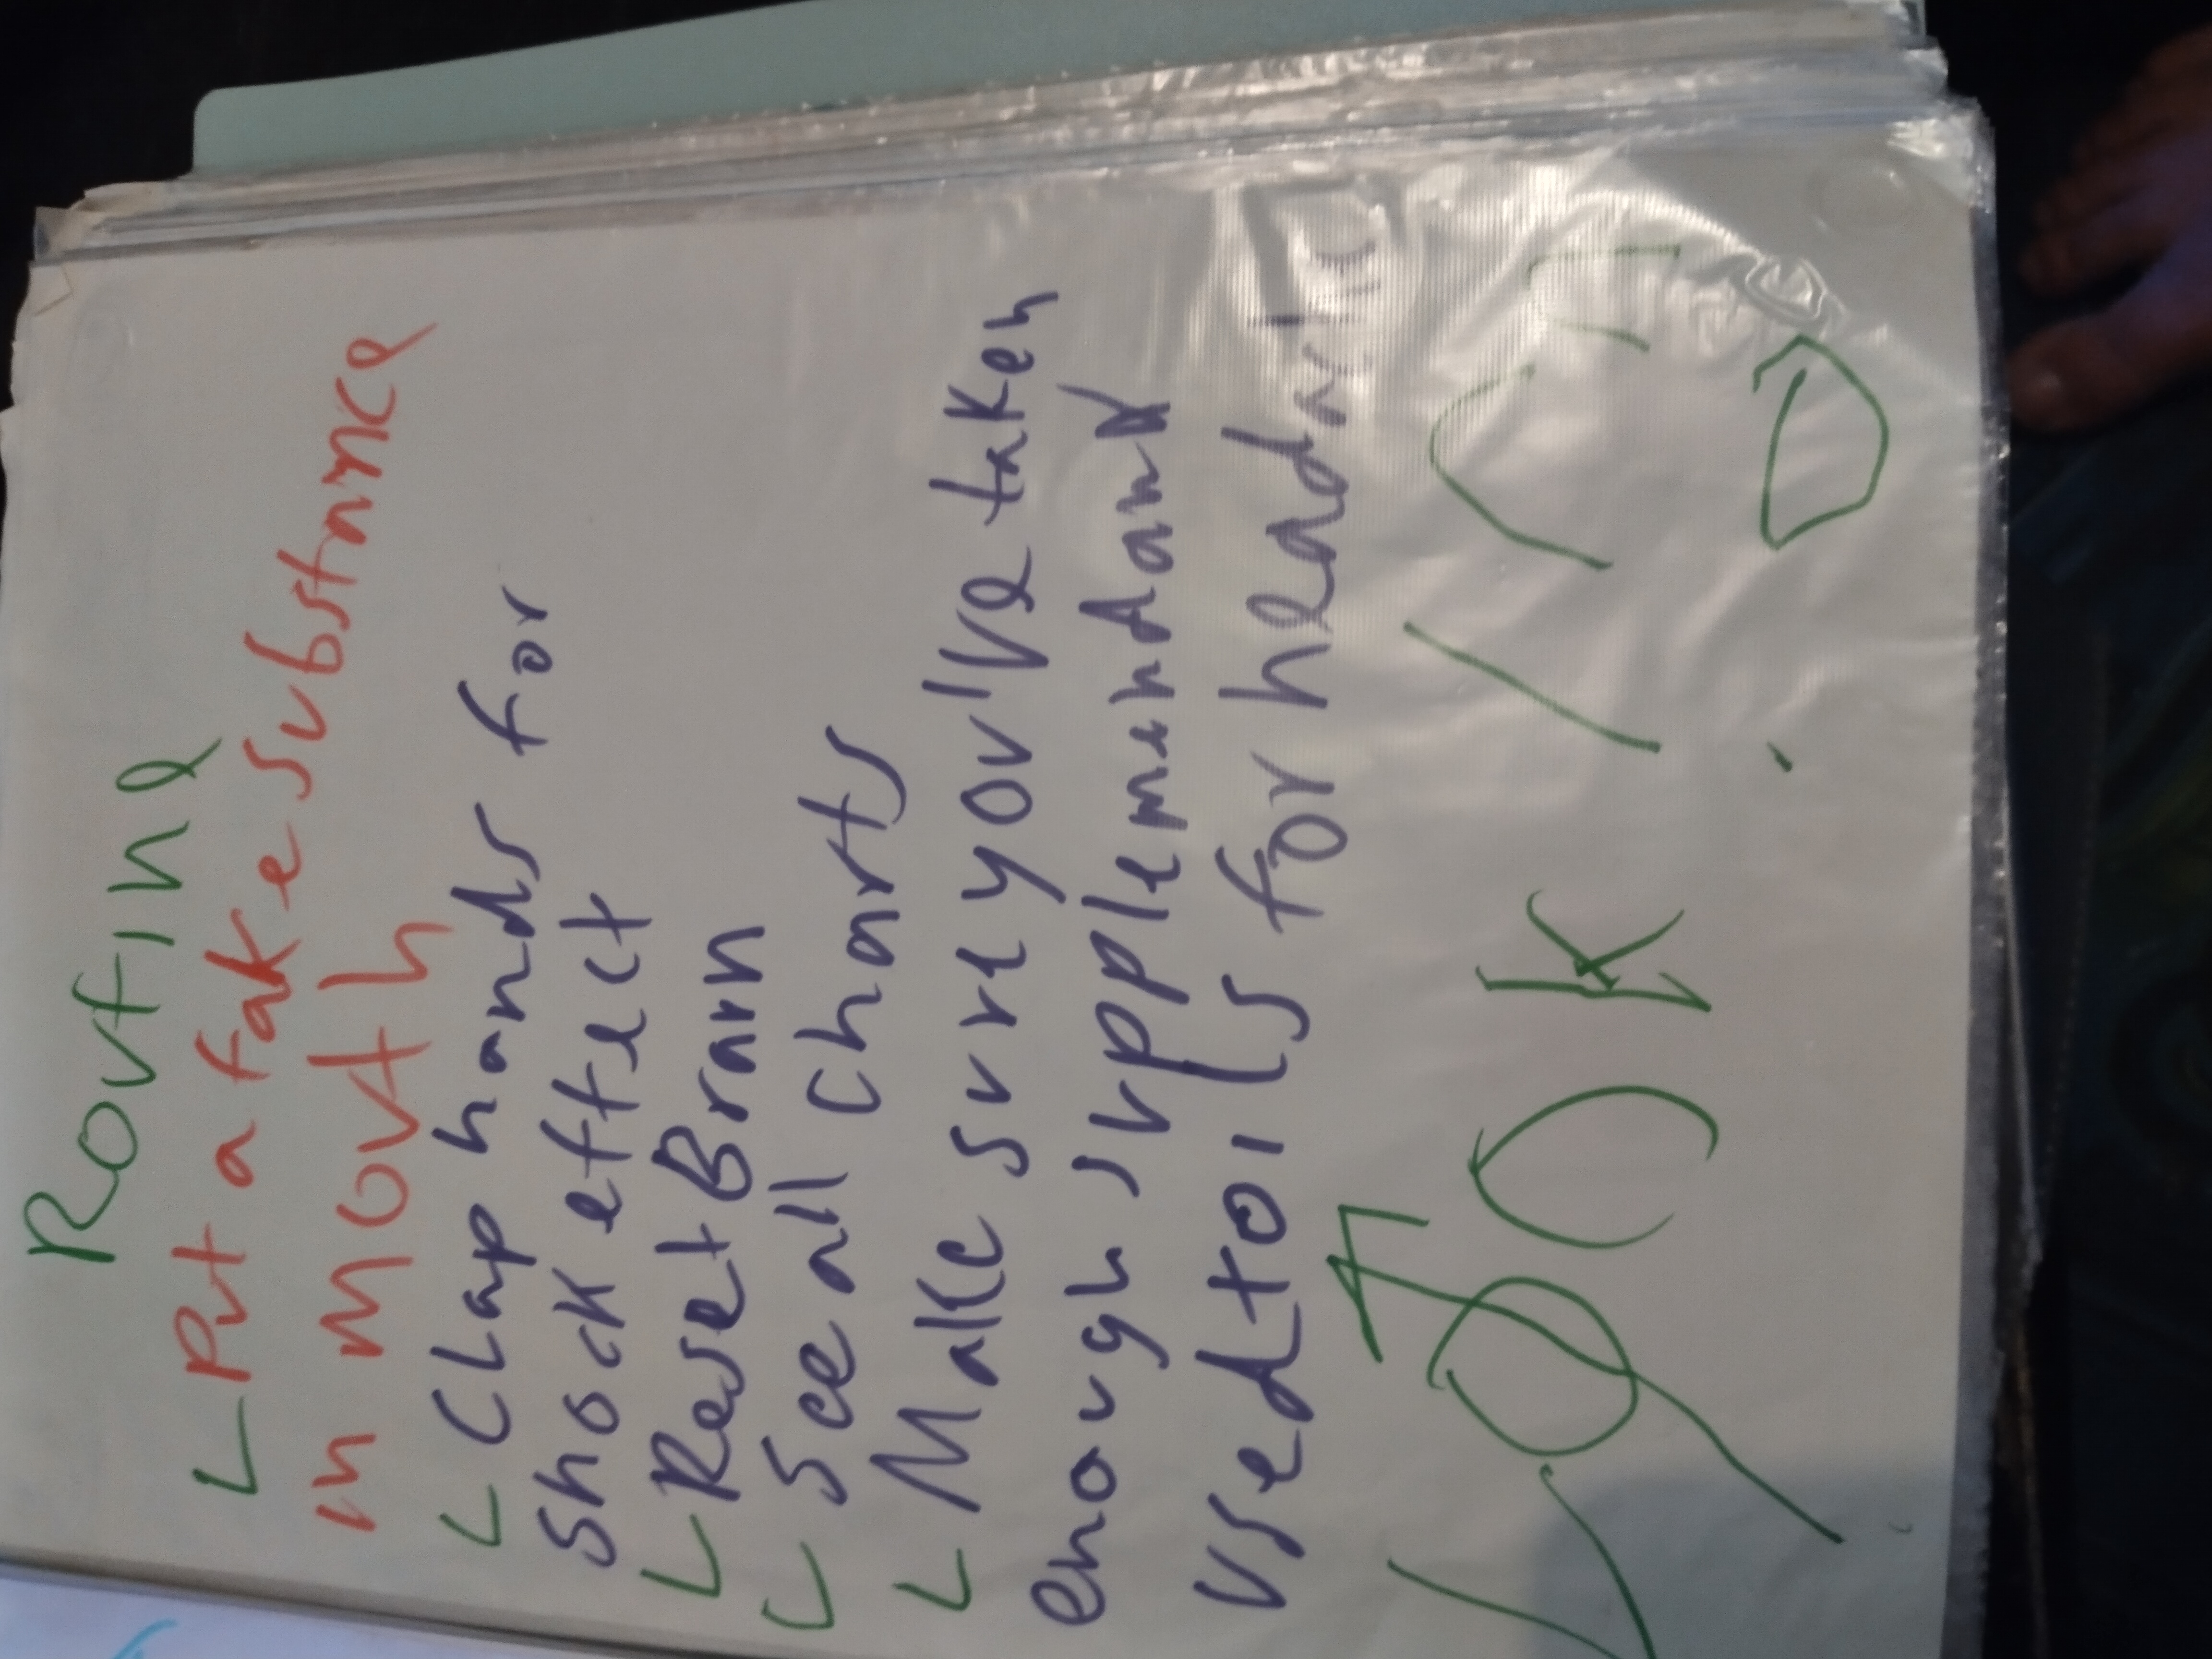 Routine
Put a fake substance
in mouth
Clap hands for
shock effect
Reset Brain
See all charts
Make sure you've taken
enough supplement and
used toils for head
OK